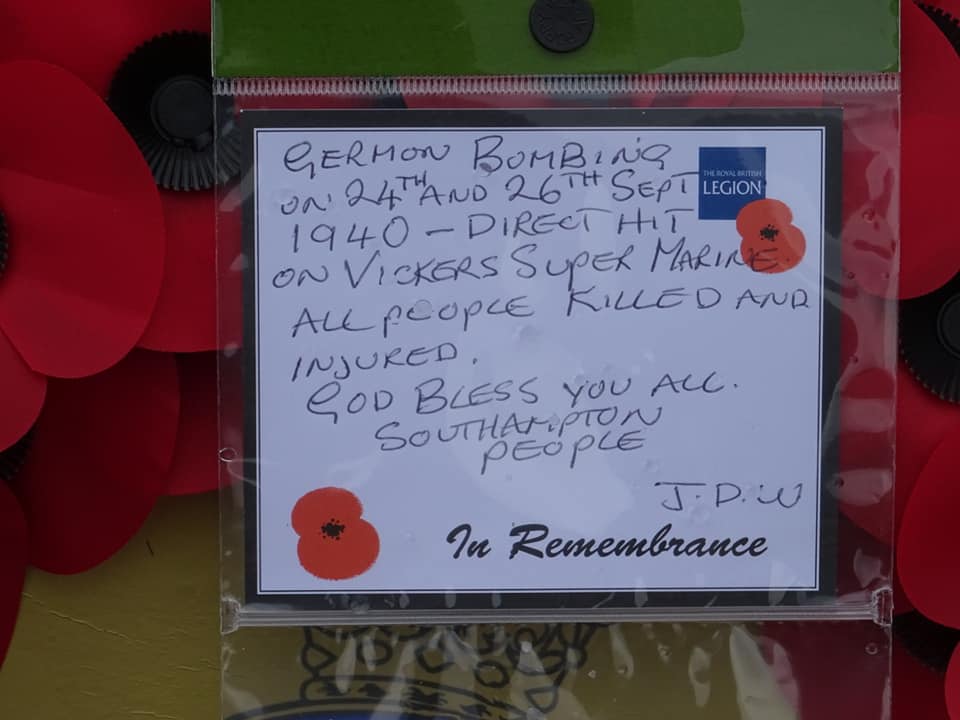 GERMON BOMBING
ON 24TH AND 26TH SEPT
1940 - DIRECT HIT
ON VICKERS SUPER MARINE.
ALL PEOPLE KILLED AND
INJURED.
GOD BLESS YOU ALL.
SOUTHAMPTON
PEOPLE
J.D.W
THE ROYAL BRITISH
LEGION
In Remembrance